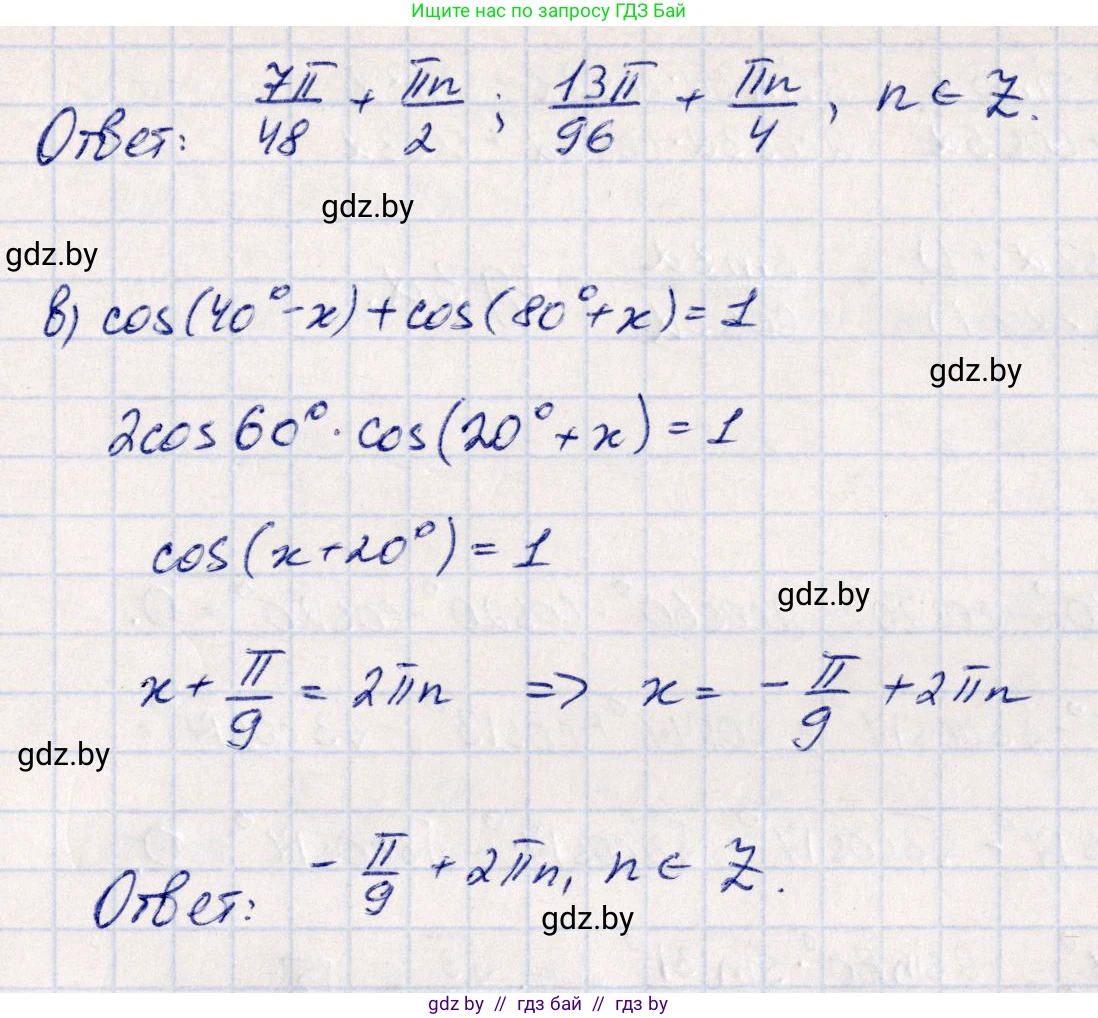 Ищите нас по запросу ГДЗ Бай
Ответ: 7π/48 + πn/2; 13π/96 + πn/4, n ∈ Z.
gdz.by
gdz.by
в) cos(40°-x)+cos(80°+x)=1
gdz.by
2cos60°·cos(20°+x)=1
cos(x+20°)=1
gdz.by
x+π/9=2πn => x=-π/9+2πn
gdz.by
Ответ: -π/9+2πn, n ∈ Z.
gdz.by
gdz by // гдз бай // гдз by